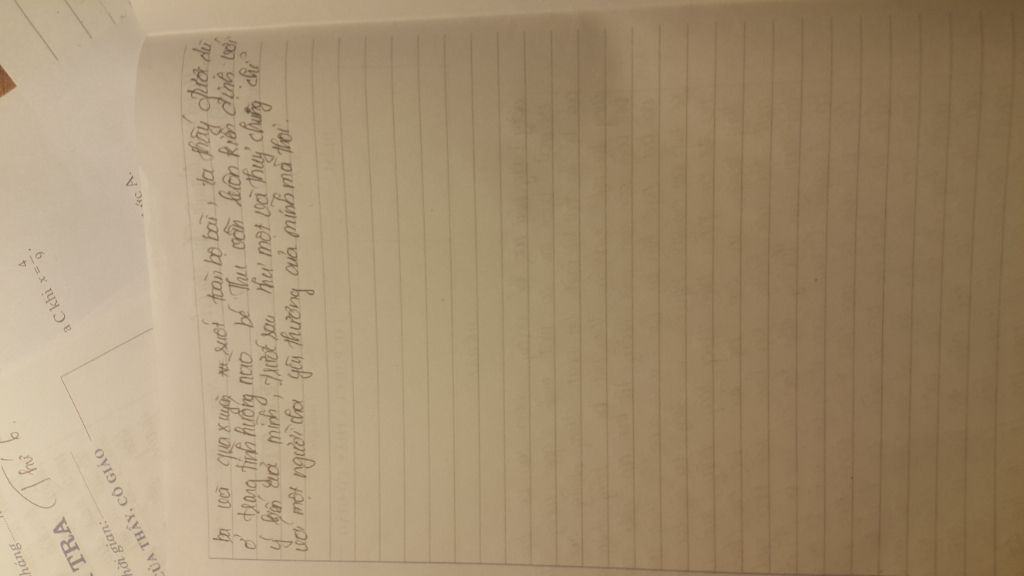 ta và qua xuyên suốt toàn bộ bài, ta thấy được dù
ở trong tình huống nào bé Thu vẫn luôn kiên định với
ý kiến của mình, trước sau như một và thuỷ chung chỉ
với một người cha yêu thương của mình mà thôi.
a C khi x = 4/9.
TRA (Thứ 6.
tháng
hời gian:
CỦA THẦY, CÔ GIÁO